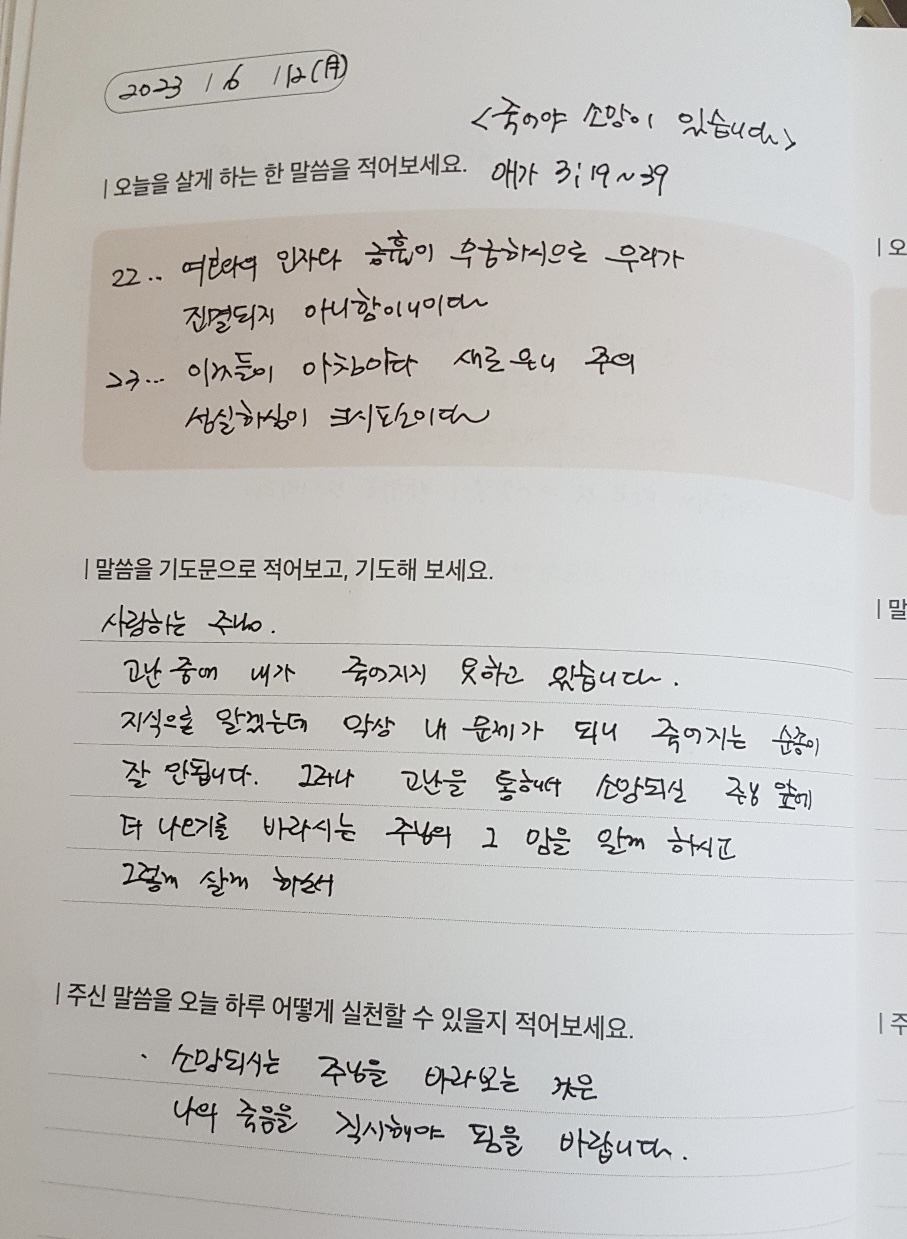 2023 / 6 / 12 (月)
<죽어야 소망이 있습니다>
| 오늘을 살게 하는 한 말씀을 적어보세요. 애가 3:19~39
22.. 여호와의 인자와 긍휼이 무궁하시므로 우리가
진멸되지 아니함이니이다
23... 이것들이 아침마다 새로우니 주의
성실하심이 크시도소이다
| 말씀을 기도문으로 적어보고, 기도해 보세요.
사랑하는 주님.
고난 중에 내가 죽어지지 못하고 있습니다.
지식으로 알겠는데 막상 내 문제가 되니 죽어지는 순종이
잘 안됩니다. 그러나 고난을 통해서 소망되신 주님 앞에
더 나오기를 바라시는 주님의 그 맘을 알게 하시고
그렇게 살게 하소서
| 주신 말씀을 오늘 하루 어떻게 실천할 수 있을지 적어보세요.
· 소망되시는 주님을 바라보는 것은
나의 죽음을 직시해야 됨을 바랍니다.
| 오
| 말
| 주